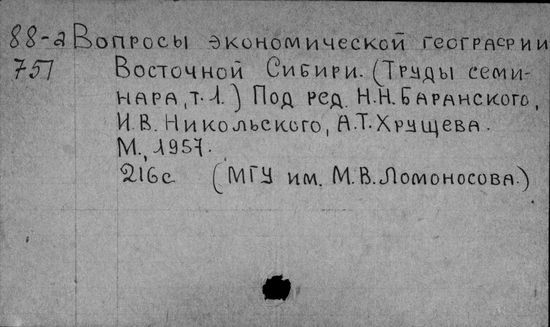 88-а Вопросы экономической географии
757 Восточной Сибири. (Труды семи-
нара, т. 1.) Под ред. Н.Н. Баранского,
И.В. Никольского, А.Т. Хрущева.
М., 1957.
216с (МГУ им. М.В. Ломоносова.)